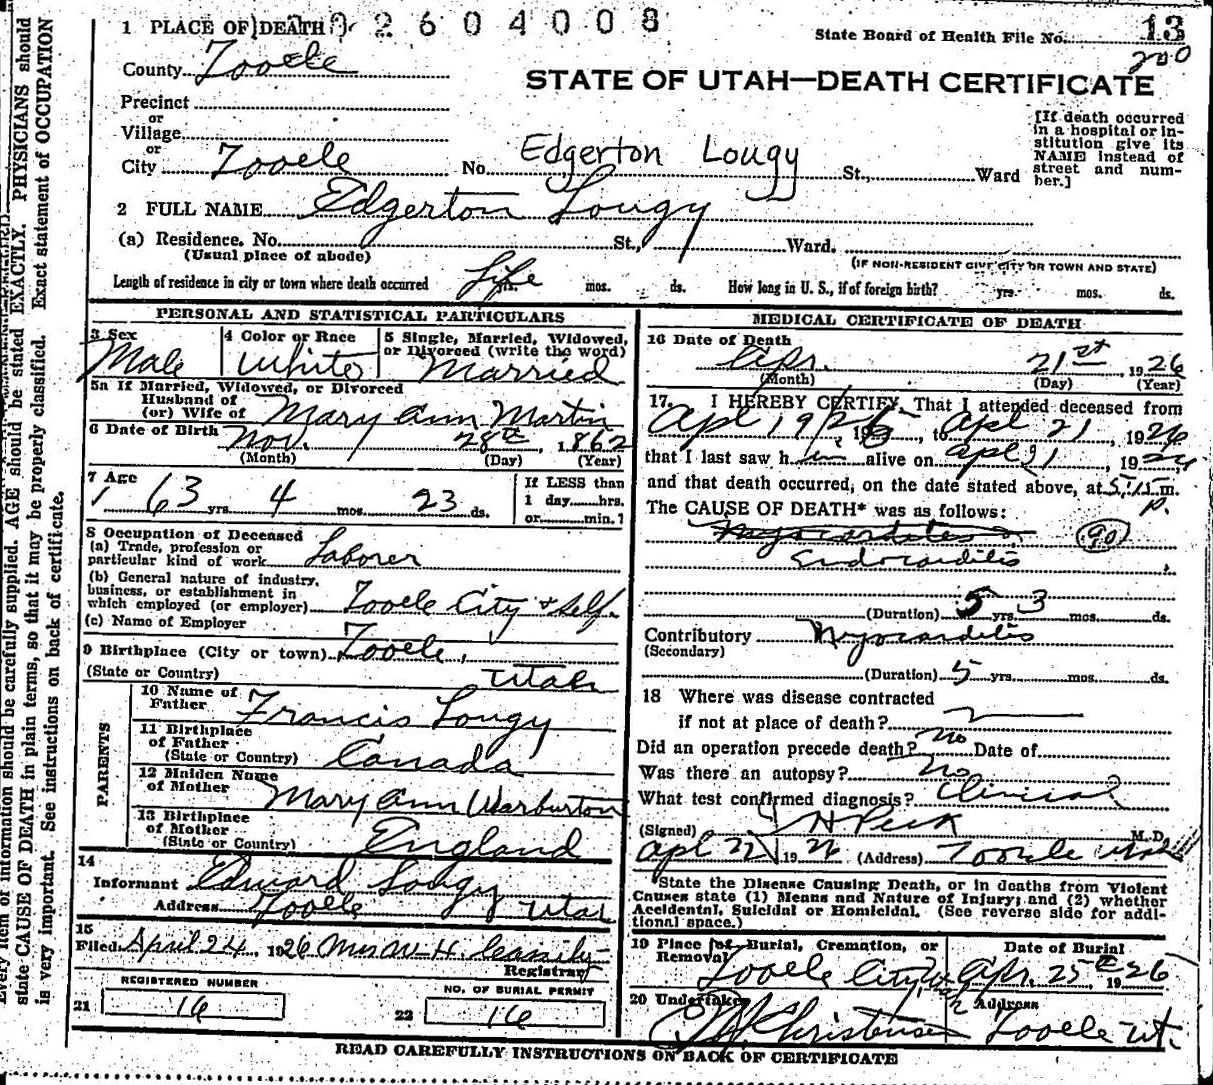 1 PLACE OF DEATH 2604008
State Board of Health File No. 13
200
County Tooele
STATE OF UTAH—DEATH CERTIFICATE
Precinct
or
Village
or
City Tooele No. Edgerton Lougy St., Ward
[If death occurred
in a hospital or in-
stitution give its
NAME instead of
street and num-
ber.]
2 FULL NAME Edgerton Lougy
(a) Residence. No. St., Ward.
(Usual place of abode)
(IF NON-RESIDENT GIVE CITY OR TOWN AND STATE)
Length of residence in city or town where death occurred Life yrs. mos. ds. How long in U. S., if of foreign birth? yrs. mos. ds.
PERSONAL AND STATISTICAL PARTICULARS
3 Sex
Male
4 Color or Race
White
5 Single, Married, Widowed,
or Divorced (write the word)
Married
5a If Married, Widowed, or Divorced
Husband of
(or) Wife of Mary Ann Martin
6 Date of Birth Nov. 28th, 1862
(Month) (Day) (Year)
7 Age
63 yrs. 4 mos. 23 ds.
If LESS than
1 day hrs.
or min.?
8 Occupation of Deceased
(a) Trade, profession or
particular kind of work Laborer
(b) General nature of industry,
business, or establishment in
which employed (or employer) Tooele City & Self.
(c) Name of Employer
9 Birthplace (City or town) Tooele,
(State or Country) Utah
PARENTS
10 Name of
Father Francis Lougy
11 Birthplace
of Father
(State or Country) Canada
12 Maiden Name
of Mother Mary Ann Warburton
13 Birthplace
of Mother
(State or Country) England
14
Informant Edward Lougy
Address Tooele Utah
15
Filed April 24, 1926 Mrs W. H. Cassity
Registrar
REGISTERED NUMBER
21 16
NO. OF BURIAL PERMIT
22 16
MEDICAL CERTIFICATE OF DEATH
16 Date of Death
Apr. 21st, 1926
(Month) (Day) (Year)
17. I HEREBY CERTIFY, That I attended deceased from
Apl 19, 1926, to Apl 21, 1926
that I last saw him alive on Apl 21, 1926
and that death occurred, on the date stated above, at 5:15 m.
P.
The CAUSE OF DEATH* was as follows:
Myocarditis 90
Endocarditis
(Duration) 5 yrs. 3 mos. ds.
Contributory Myocarditis
(Secondary)
(Duration) 5 yrs. mos. ds.
18 Where was disease contracted
if not at place of death?
Did an operation precede death? No Date of
Was there an autopsy? No
What test confirmed diagnosis? Clinical
(Signed) J H Peck M.D.
Apl 22, 1926 (Address) Tooele Utah
*State the Disease Causing Death, or in deaths from Violent
Causes state (1) Means and Nature of Injury; and (2) whether
Accidental, Suicidal or Homicidal. (See reverse side for addi-
tional space.)
19 Place of Burial, Cremation, or
Removal Tooele City,
Date of Burial
Apr. 25th 1926
20 Undertaker Christensen
Address
Tooele Ut.
READ CAREFULLY INSTRUCTIONS ON BACK OF CERTIFICATE
Every item of information should be carefully supplied. AGE should be stated EXACTLY. PHYSICIANS should
state CAUSE OF DEATH in plain terms, so that it may be properly classified. Exact statement of OCCUPATION
is very important. See instructions on back of certificate.